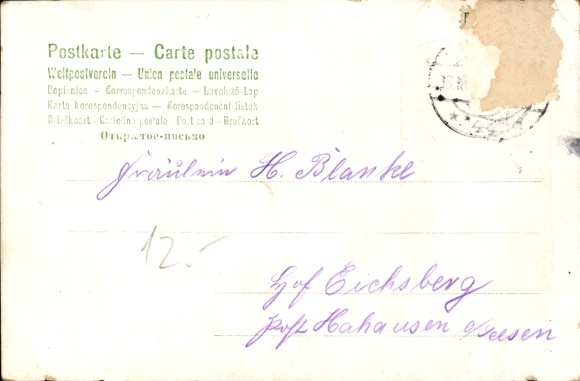 Postkarte — Carte postale
Weltpostverein — Union postale universelle
Dopisnice - Correspondenzkarte - Levelező-Lap
Karta korespondencyjna — Korespondenční listek
Briefkaart - Cartolina postale Post card - Brefkort
Открытое-письмо
Fräulein H. Blanke
12.-
Hof Eichsberg
Post Hahausen a/Seesen